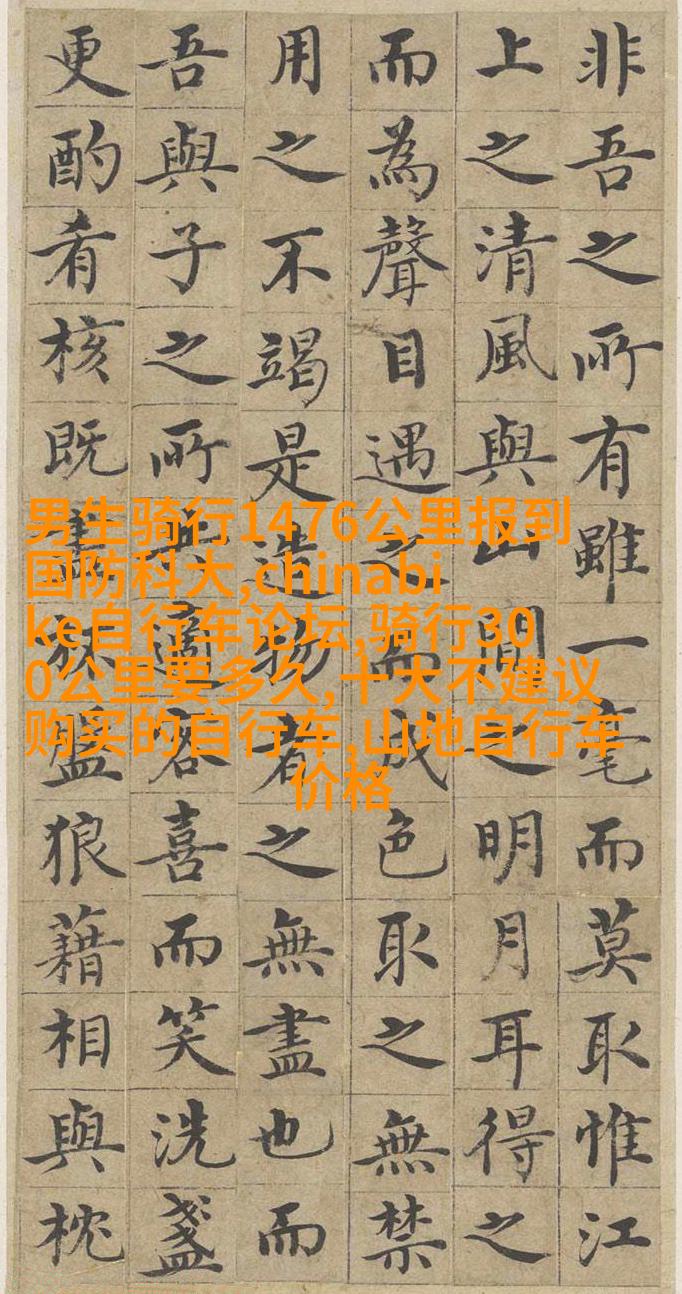 非吾之所有雖一毫而莫取惟江
上之清風與山間之明月耳得之
而為聲目遇之而成色取之無禁
用之不竭是造物者之無盡也而
吾與子之所共適客喜而笑洗盞
更酌肴核既盡杯盤狼藉相與枕
男生骑行1476公里报到
国防科大,chinabi
ke自行车论坛,骑行30
0公里要多久,十大不建议
购买的自行车,山地自行车
价格